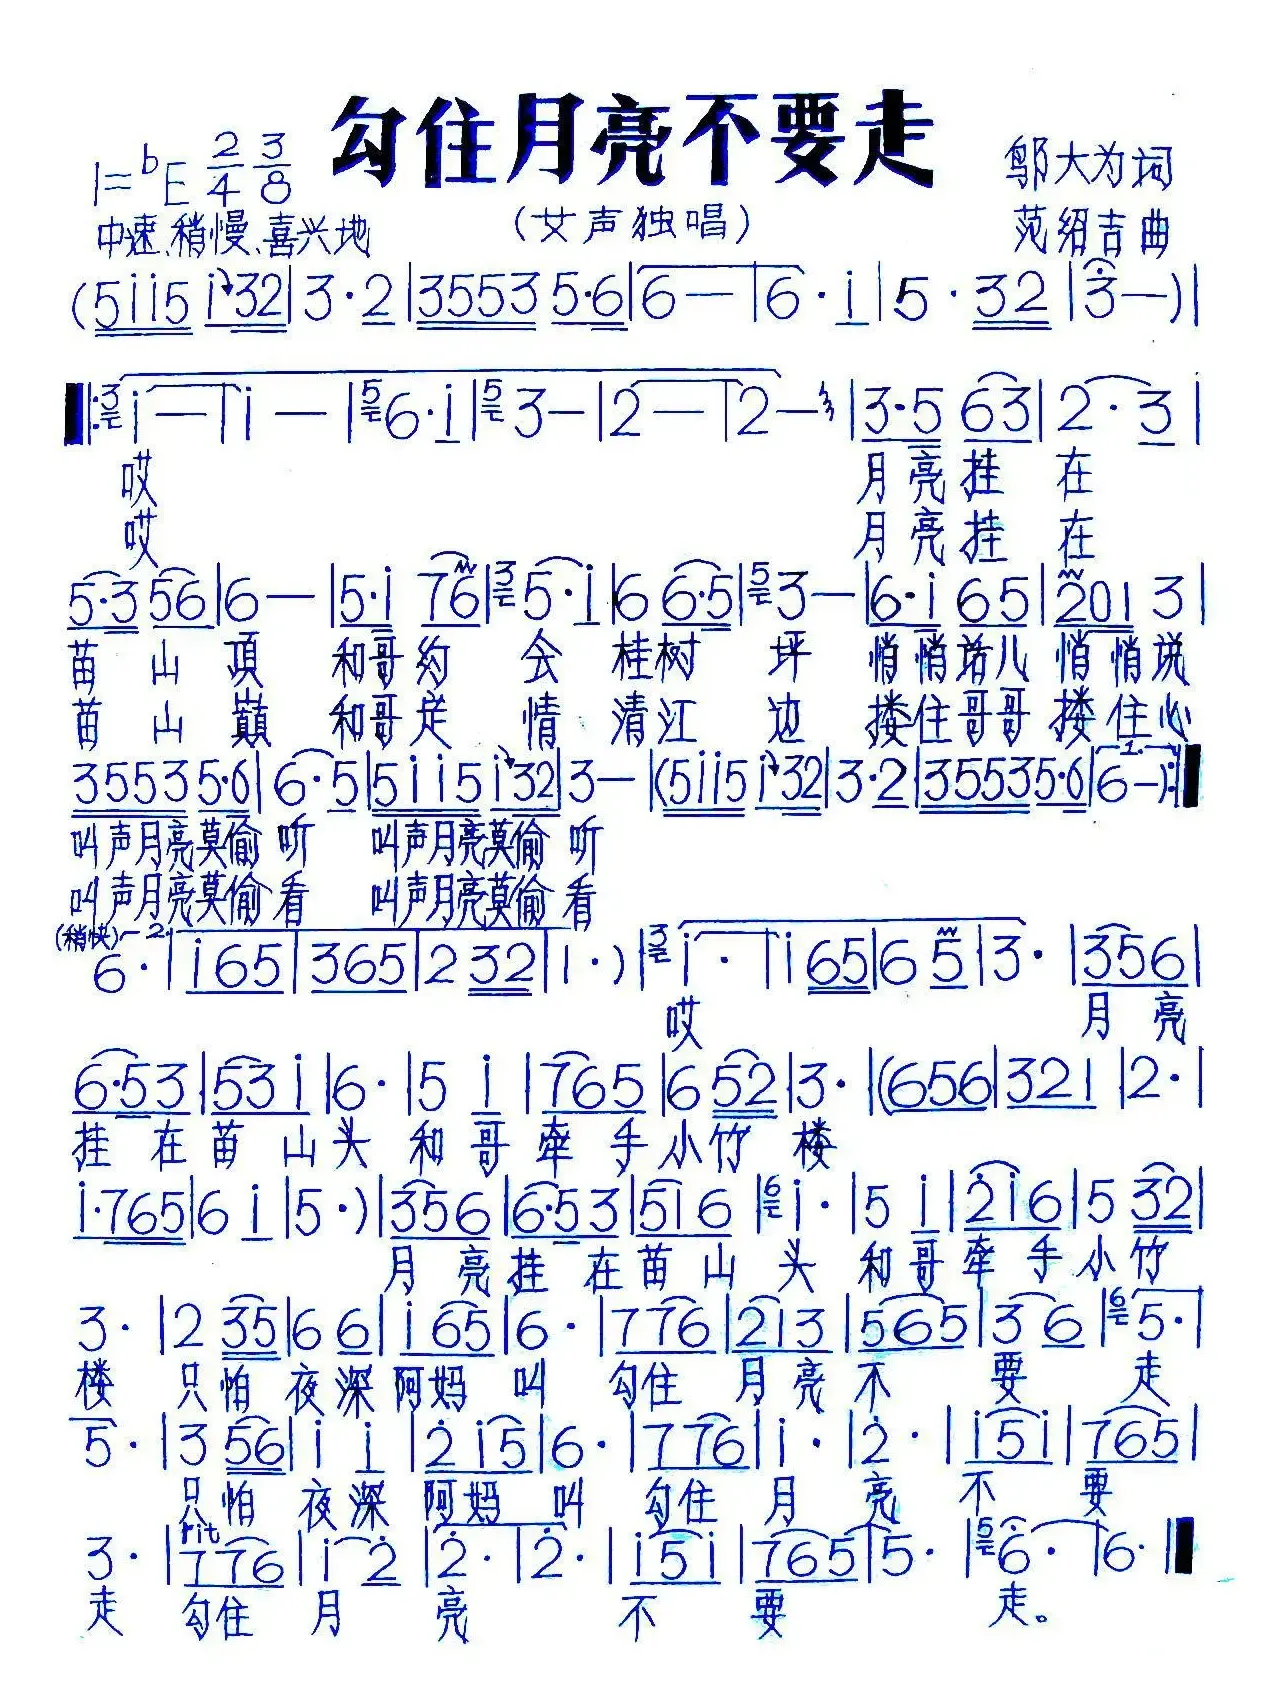 勾住月亮不要走
1=bE 2/4 3/8
邬大为词
中速、稍慢、喜兴地
(女声独唱)
范绍吉曲
(5i i5 i32|3·2|3553 5·6|6—|6·i|5·32|3—)|
‖:3 i—|i—|5 6·i|5 3—|2—|2—|3·5 63|2·3|
哎 月亮挂 在
哎 月亮挂 在
5·3 56|6—|5·i 76|3 5·i|6 6·5|5 3—|6·i 65|201 3|
苗山頂 和哥约会桂树坪 悄悄话儿悄悄说
苗山巅 和哥定情清江边 搂住哥哥搂住心
3553 5·6|6·5|5i i5 i32|3—|(5i i5 i32|3·2|3553 5·6|1. 6—):‖
叫声月亮莫偷听 叫声月亮莫偷听
叫声月亮莫偷看 叫声月亮莫偷看
(稍快) 2. 6·|i65|365|2 32|1·)|3 i·|i 65|6 5|3·|356|
哎 月亮
6·53|53i|6·|5 i|765|6 52|3·|(656|321|2·|
挂在苗山头和哥牵手小竹楼
i·765|6 i|5·)|356|6·53|5i6|6 i·|5 i|2i6|5 32|
月亮挂在苗山头和哥牵手小竹
3·|2 35|6 6|i65|6·|776|2i3|565|3 6|6 5·|
楼只怕夜深阿妈叫勾住月亮不要走
5·|3 56|i i|2i5|6·|776|i·|2·|i5i|765|
只怕夜深阿妈叫勾住月亮不要
rit
3·|776|i 2|2·|2·|i5i|765|5·|5 6·|6·‖
走勾住月亮不要走。